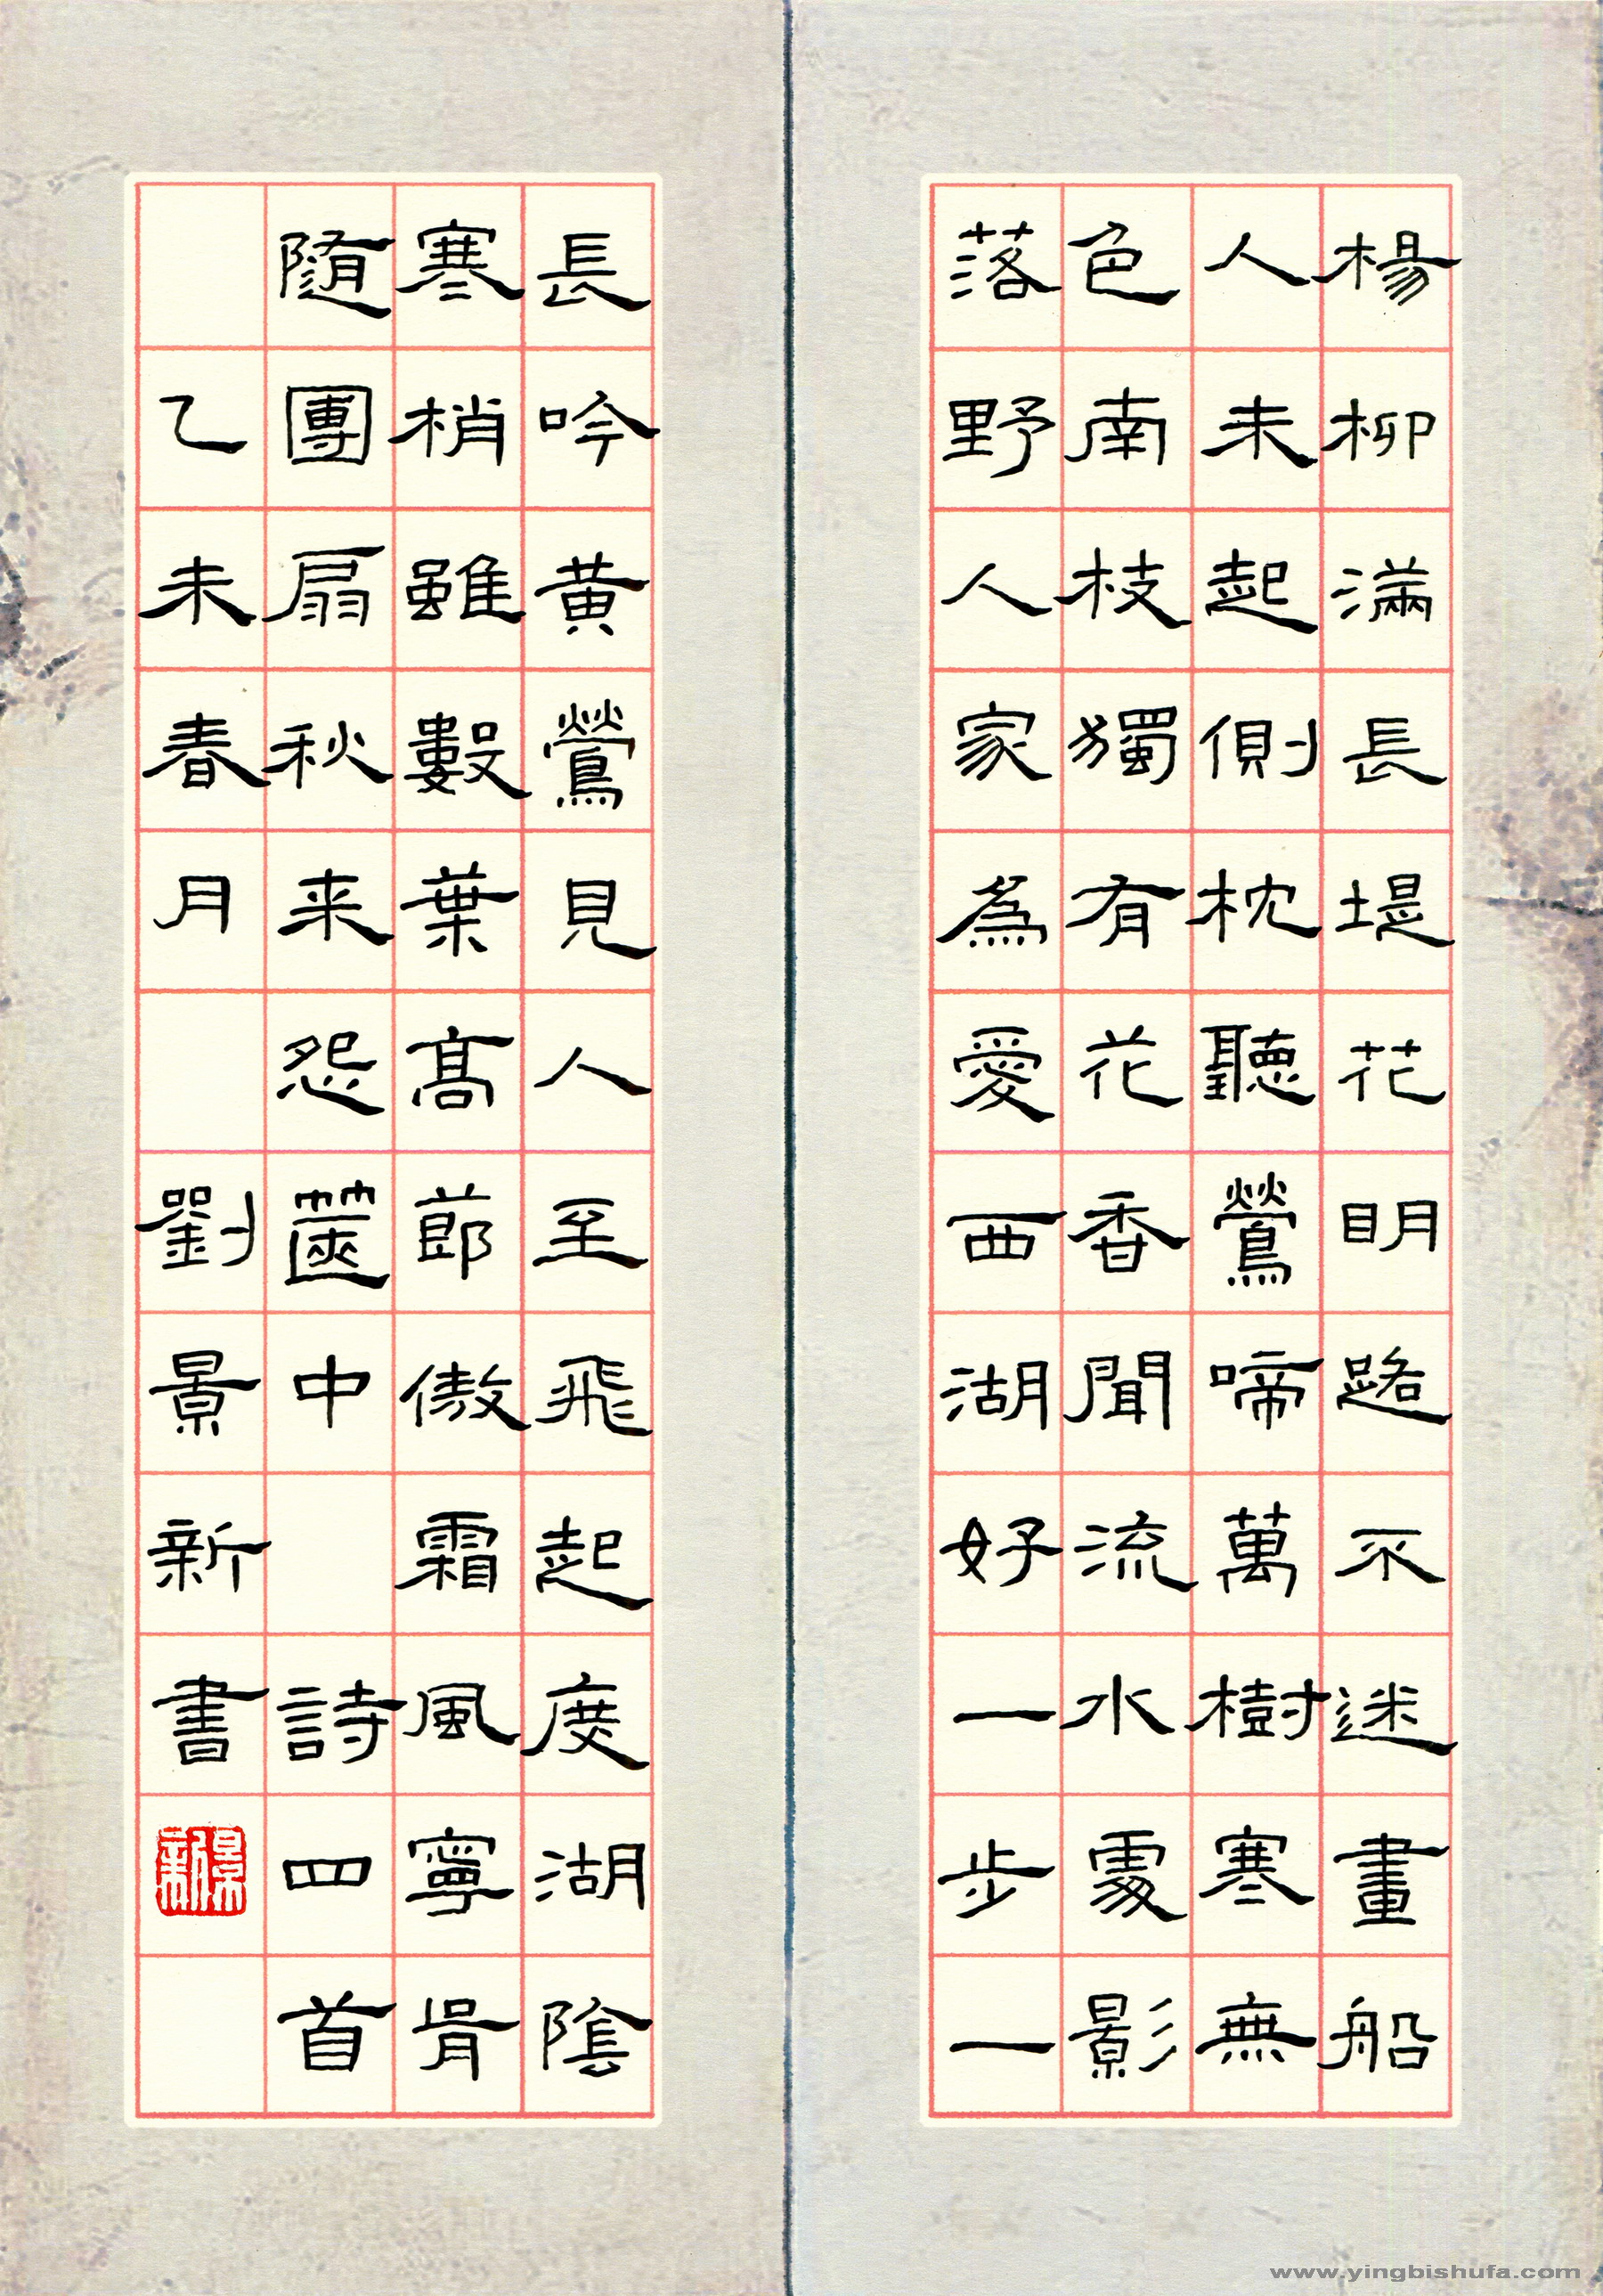 楊柳滿長堤花明路不迷畫船
人未起側枕聽鶯啼萬樹寒無
色南枝獨有花香聞流水處影
落野人家為愛西湖好一步一
長吟黃鶯見人至飛起度湖陰
寒梢雖數葉高節傲霜風寧肯
隨團扇秋来怨篋中 詩四首
乙未春月 劉景新書
景新
www.yingbishufa.com